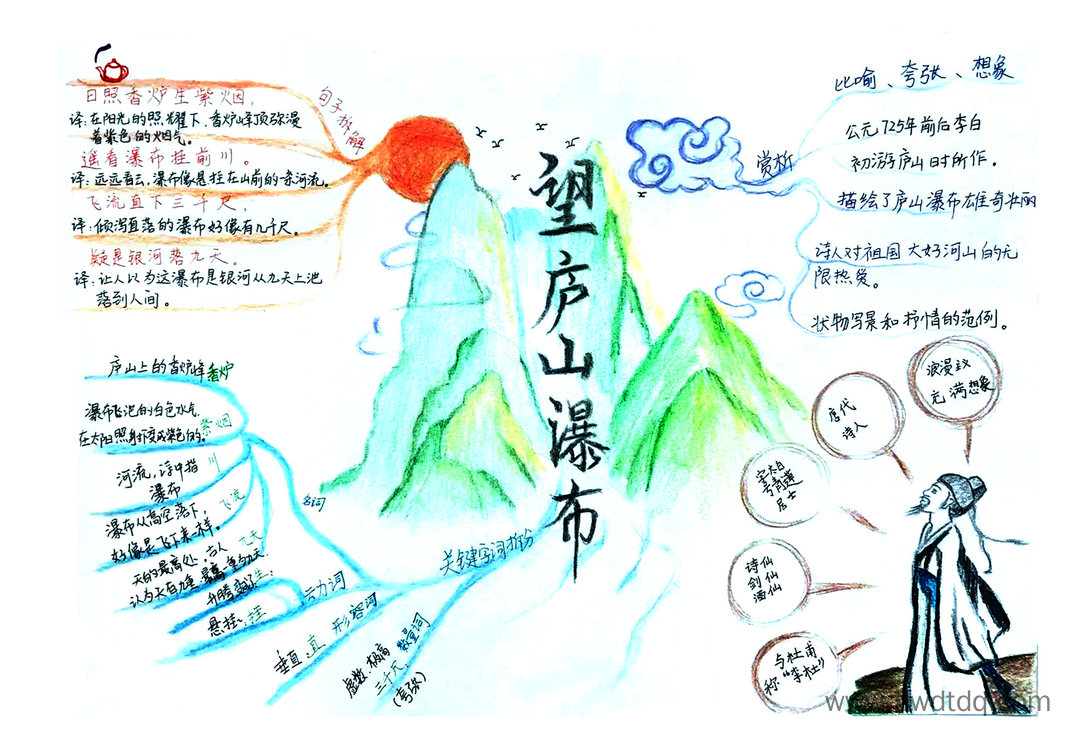 望庐山瀑布
句子拆解
日照香炉生紫烟，
译：在阳光的照耀下，香炉峰顶弥漫
着紫色的烟气。
遥看瀑布挂前川。
译：远远看去，瀑布像是挂在山前的一条河流。
飞流直下三千尺，
译：倾泻直落的瀑布好像有几千尺。
疑是银河落九天。
译：让人以为这瀑布是银河从九天上池
落到人间。
赏析
比喻、夸张、想象
公元725年前后李白
初游庐山时所作。
描绘了庐山瀑布雄奇壮丽
诗人对祖国大好河山的无
限热爱。
状物写景和抒情的范例。
关键字词拆份
名词
庐山上的香炉峰
香炉
瀑布飞池的白色水气
在太阳照射下变成紫色的。
紫烟
河流，诗中指
瀑布
川
瀑布从高空落下，
好像是飞下来一样。
飞流
天的最高处，古人
认为天有九重
九天
动力词
生
悬挂：挂
形容词
垂直：直
数量词
虚数，极高
三千尺
（夸张）
浪漫议
充满想象
唐代
诗人
字太白
号青莲
居士
诗仙
剑仙
酒仙
与杜甫
称“李杜”